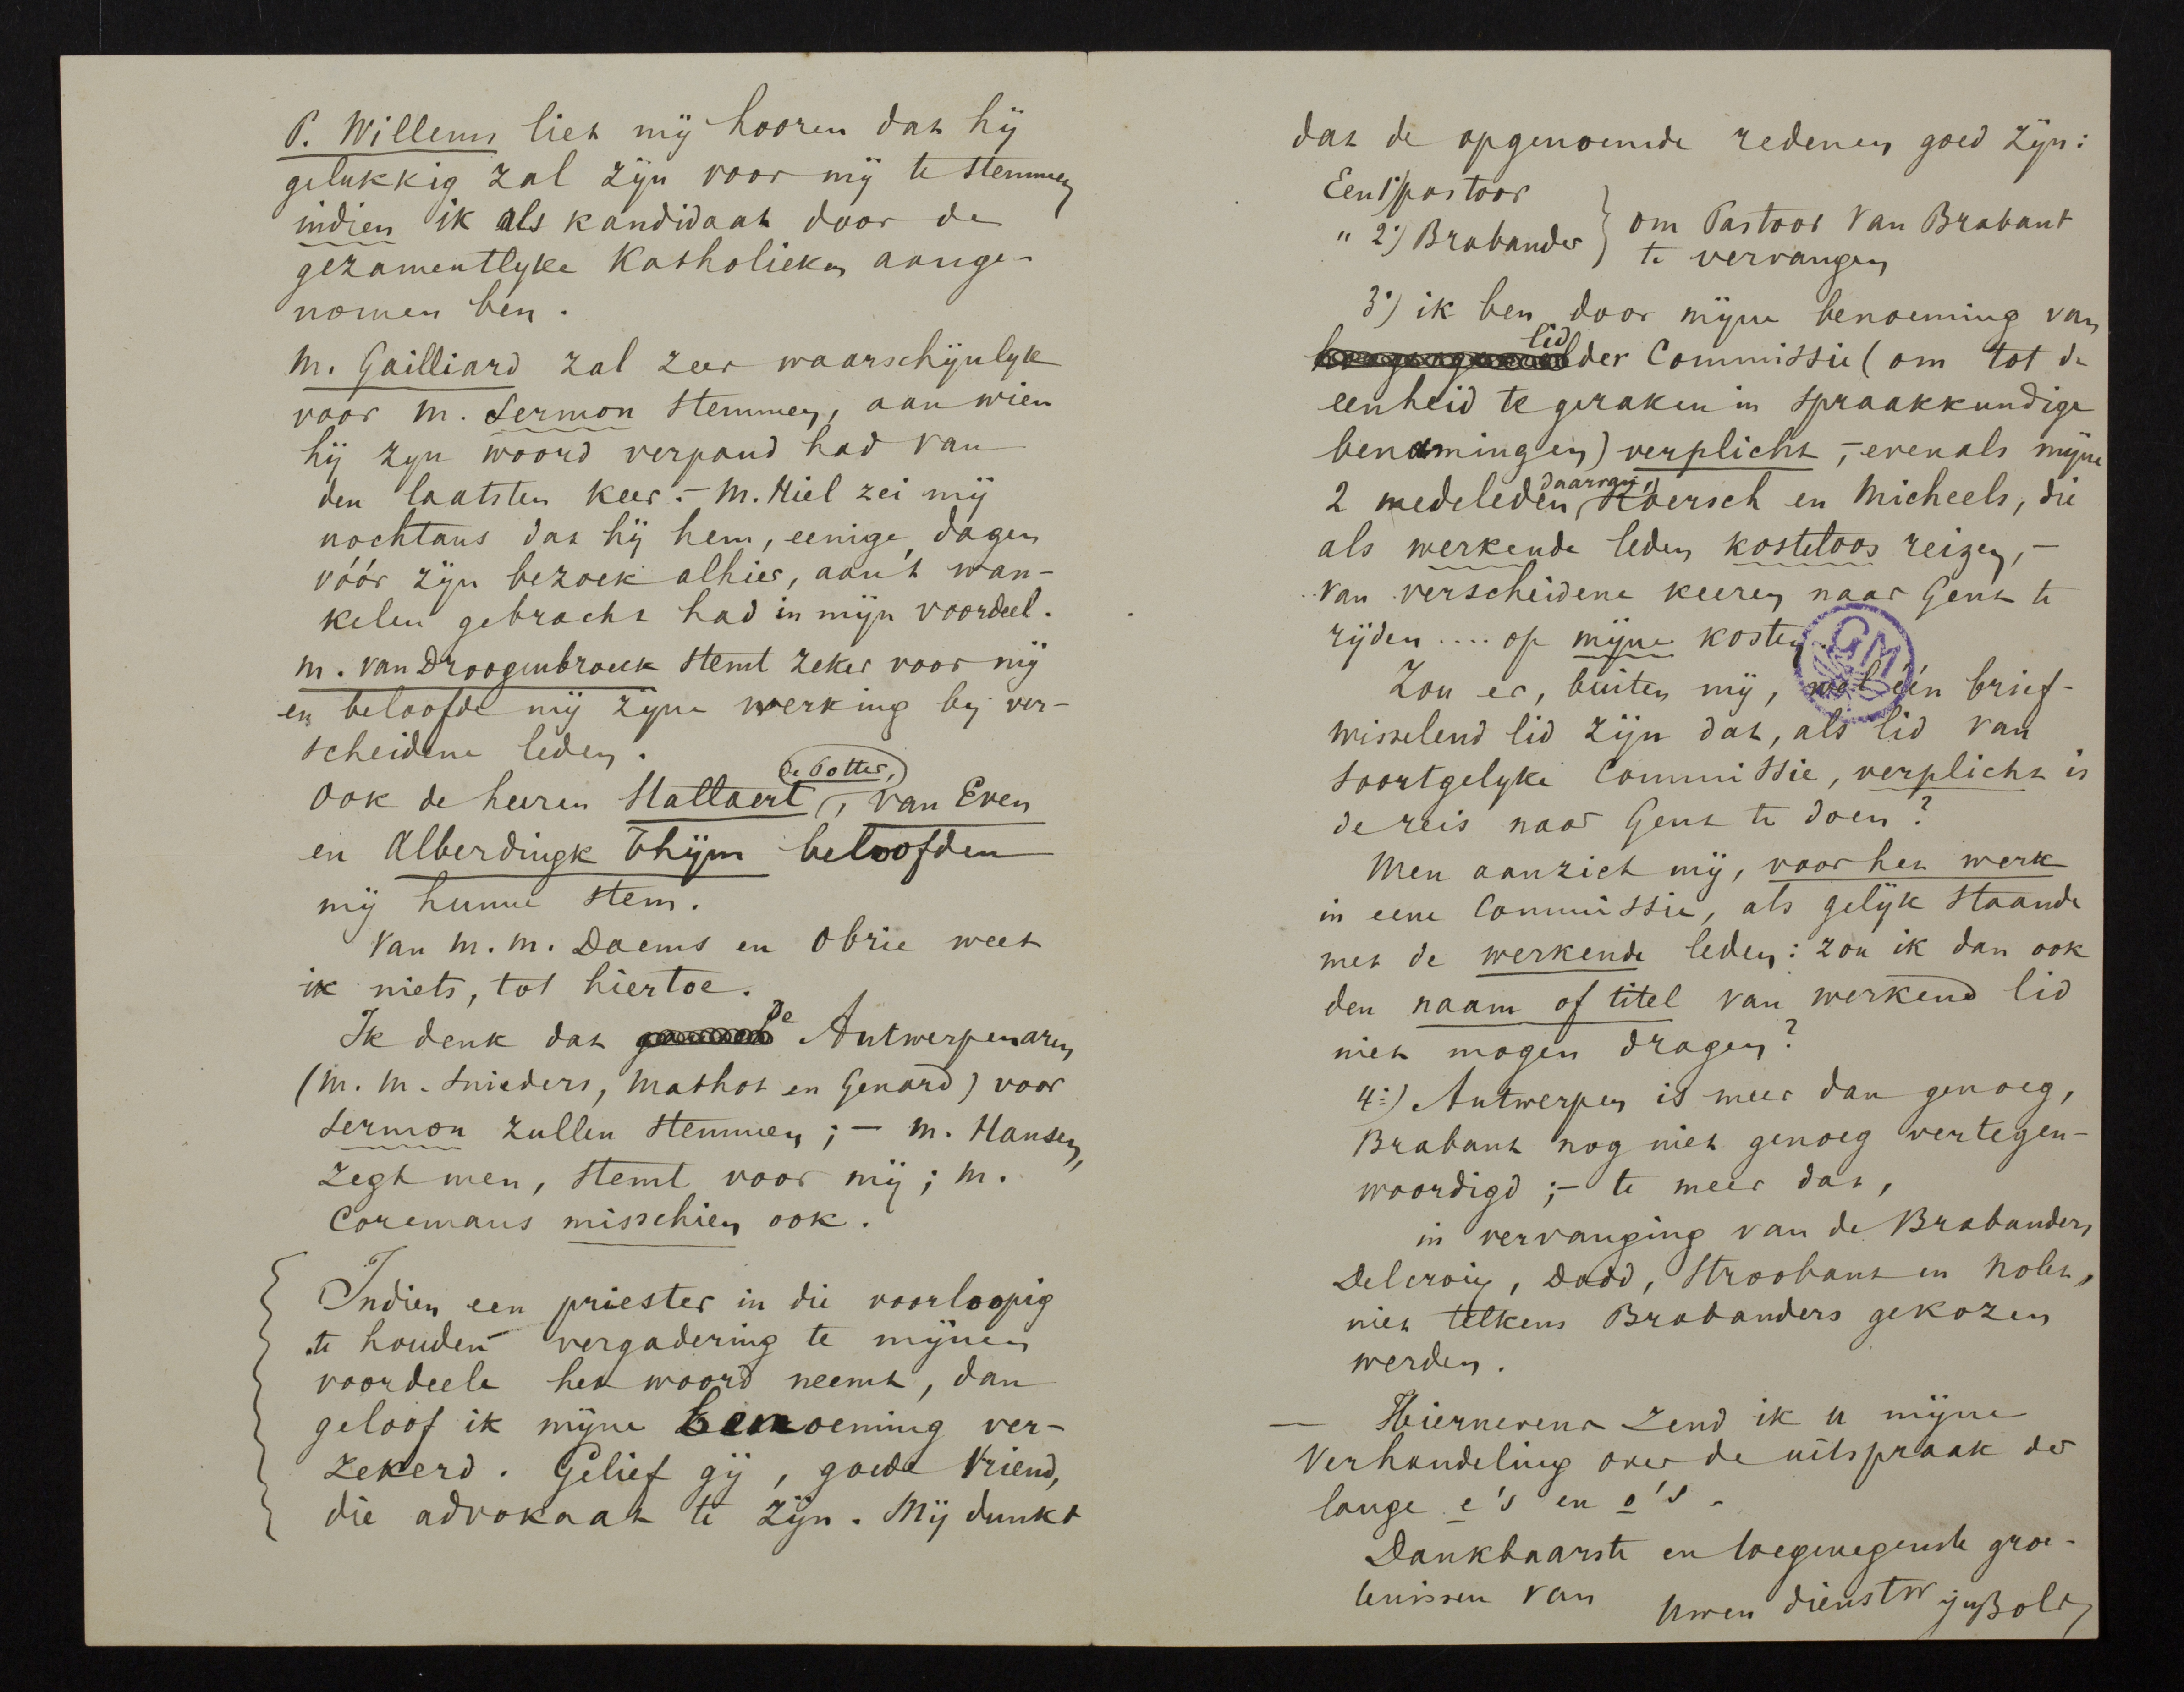 P. Willems liet mij hooren dat hij
gelukkig zal zijn voor mij te stemmen
indien ik als kandidaat door de
gezamentlyke Katholieken aange-
nomen ben.
M. Gailliard zal zeer waarschijnlyk
voor M. Sermon stemmen, aan wien
hij zyn woord verpand had van
den laatsten keer. – M. Hiel zei mij
nochtans dat hij hem, eenige dagen
vóór zijn bezoek alhier, aan't wan-
kelen gebracht had in mijn voordeel.
M. Van Droogenbroeck stemt zeker voor mij
en beloofde mij zijne werking by ver-
scheidene leden.
Ook de heeren Stallaert, de Potter, van Even
en Alberdingk Thijm beloofden
mij hunne stem.
Van M. M. Daems en Obrie weet
ik niets, tot hiertoe.
Ik denk dat de Antwerpenaren
(M. M. Snieders, Mathot en Genard) voor
Sermon zullen stemmen; – M. Hansen,
zegt men, stemt voor mij; M.
Coremans misschien ook.
Indien een priester in die voorloopig
te houden vergadering te mijnen
voordeele het woord neemt, dan
geloof ik mijne benoeming ver-
zekerd. Gelief gij, goede Vriend,
die advokaat te zijn. Mij dunkt
dat de opgenoemde redenen goed zijn:
Een 1°/ pastoor
" 2°) Brabander } om Pastoor Van Brabant
te vervangen
3°) ik ben door mijne benoeming van
lid der Commissie (om tot de
eenheid te geraken in spraakkundige
benamingen) verplicht, – evenals mijne
2 medeleden daarvan, Roersch en Micheels, die
als werkende leden kosteloos reizen, –
van verscheidene keeren naar Gent te
rijden .... op mijne kosten.
GM
Zou er, buiten mij, wel één brief-
wisselend lid zijn dat, als lid van
soortgelyke Commissie, verplicht is
de reis naar Gent te doen?
Men aanziet mij, voor het werk
in eene Commissie, als gelijk staande
met de werkende leden: zou ik dan ook
den naam of titel van werkend lid
niet mogen dragen?
4°) Antwerpen is meer dan genoeg,
Brabant nog niet genoeg vertegen-
woordigd; – te meer dat,
in vervanging van de Brabanders
Delcroix, Dodd, Stroobant en Nolet,
niet telkens Brabanders gekozen
werden.
— Hiernevens zend ik u mijne
Verhandeling over de uitspraak der
lange e's en o's.
Dankbaarste en toegenegenste groe-
tenissen van Uwen dienstw